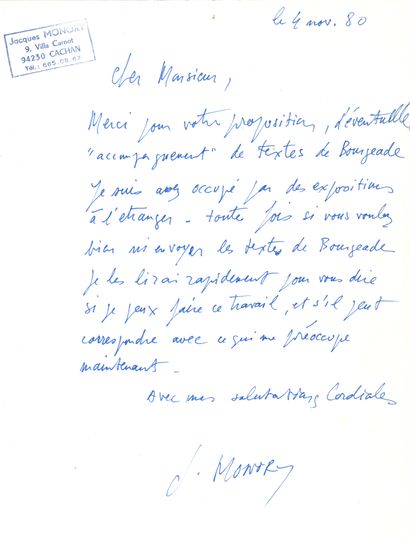 le 4 nov. 80
Jacques MONORY
9, Villa Carnot
94230 CACHAN
Tél.: 665.09.67
Cher Monsieur,
Merci pour votre proposition, d'éventuelle
"accompagnement" de textes de Bourgeade
Je suis assez occupé par des expositions
à l'étranger - toutes fois si vous voulez
bien m'envoyer les textes de Bourgeade
je les lirai rapidement pour vous dire
si je peux faire ce travail, et s'il peut
correspondre avec ce qui me préoccupe
maintenant -
Avec mes salutations Cordiales
J. MONORY